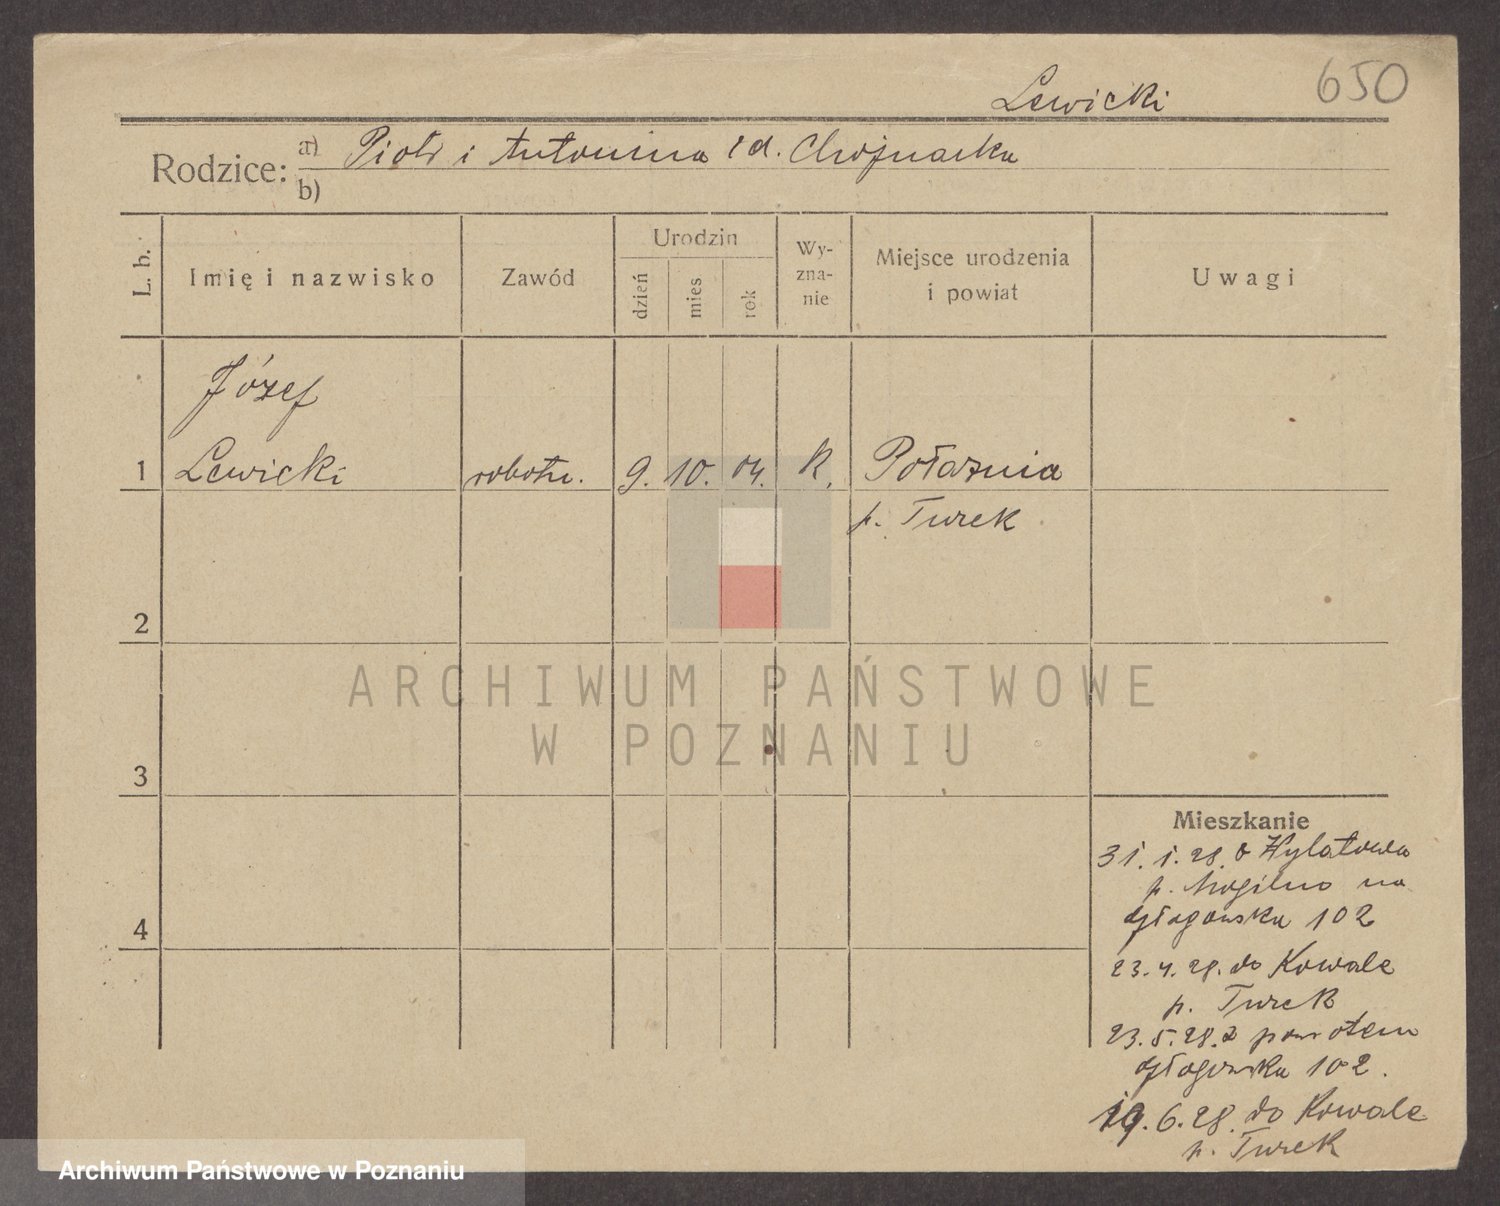 Lewicki
650
Rodzice: a) Piotr i Antonina zd. Chojnacka
b)
L. b.
Imię i nazwisko
Zawód
Urodzin
dzień
mies
rok
Wy-
zna-
nie
Miejsce urodzenia
i powiat
Uwagi
Józef
1 Lewicki robotn. 9. 10. 04. k.
p. Turek
2
ARCHIWUM PAŃSTWOWE
W POZNANIU
3
Mieszkanie
31. 1. 28. z Wylatowa
p. Mogilno na
4 Głogowska 102
23. 4. 28. do Kowale
p. Turek
23. 5. 28. z powrotem
Głogowska 102.
19. 6. 28. do Kowale
p. Turek
Archiwum Państwowe w Poznaniu